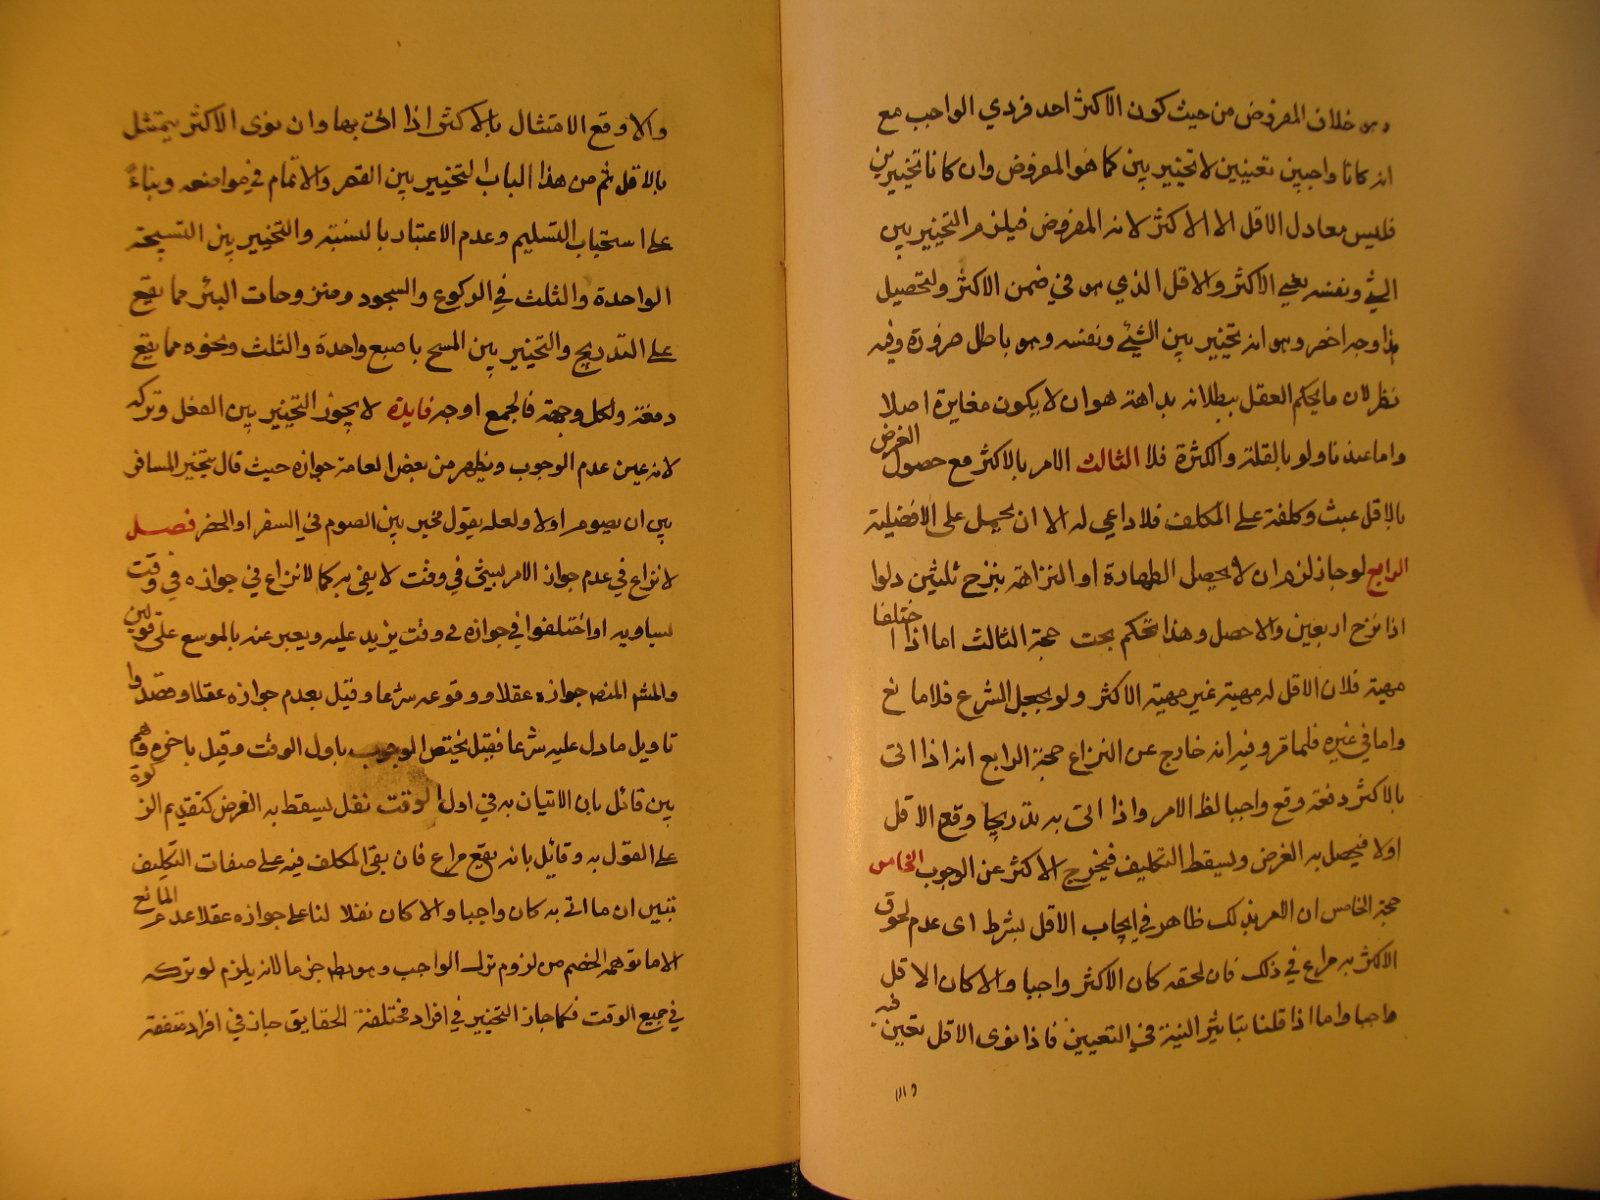 وهو خلاف المفروض من حيث كون الاكثر احد فردي الواجب مع
انه كانا واجبين تعيينين لا تخييريين كما هو المفروض وان كانا تخييريين
فليس معادل الاقل الا الاكثر لانه المفروض فيلزم التخيير بين
الشئ ونفسه يعني الاكثر والاقل الذي هو في ضمن الاكثر ولتحصيل
هذا وجه اخر وهو انه تخيير بين الشئ ونفسه وهو باطل ضرورة وفيه
نظر لان ما يحكم العقل ببطلانه بداهة هو ان لا يكون مغايرة اصلا
واما عندنا ولو بالقلة والكثرة فلا الثالث الامر بالاكثر مع حصول الغرض
بالاقل عبث وكلفة على المكلف فلا داعي له الا ان يحمل على الافضلية
الرابع لو جاز لزم ان لا يحصل الطهارة او النزاهة بنزح ثلثين دلوا
اذا نزح اربعين والا حصل وهذا تحكم بحت حجة الثالث اما اذا اختلفا
مهية فلان الاقل له مهية غير مهية الاكثر ولو بجعل الشرع فلا مانع
واما في غيره فلما مر وفيه انه خارج عن النزاع حجة الرابع انه اذا اتى
بالاكثر دفعة وقع واجبا لظ الامر واذا اتى به تدريجا وقع الاقل
اولا فيحصل به الغرض ويسقط التكليف فيخرج الاكثر عن الوجوب الخامس
حجة الخامس ان الامر بذلك ظاهر في ايجاب الاقل بشرط اى عدم لحوق
الاكثر به مراع في ذلك فان لحقه كان الاكثر واجبا والا كان الاقل
واجبا واما اذا قلنا بتاثير النية في التعيين فاذا نوى الاقل تعين فيه
والا
والا وقع الامتثال بالاكثر اذا اتى بها وان نوى الاكثر يمتثل
بالاقل ثم من هذا الباب التخيير بين القصر والاتمام في مواضعه وبناءً
على استحباب التسليم وعدم الاعتبار بالنسبة والتخيير بين التسبيحة
الواحدة والثلث في الركوع والسجود ومنزوحات البئر مما يقع
على التدريج والتخيير بين المسح باصبع واحدة والثلث ونحوه مما يقع
دفعة ولكل وجهة فالجمع اوجه فايدة لا يجوز التخيير بين الفعل وتركه
لانه عين عدم الوجوب ويظهر من بعض العامة جوازه حيث قال بتخيير المسافر
بين ان يصوم اولا ولعله يقول مخير بين الصوم في السفر او الحضر فصل
لا نزاع في عدم جواز الامر بشئ في وقت لا يفي به كما لا نزاع في جوازه في وقت
يساويه او اختلفوا في جوازه في وقت يزيد عليه ويعبر عنه بالموسع على قولين
والمشه المنصه جوازه عقلا ووقوعه شرعا وقيل بعدم جوازه عقلا وقصدوا
تاويل ما دل عليه شرعا فقيل يختص الوجوب باول الوقت وقيل باخره وهم
بين قائل بان الاتيان به في اول الوقت نفل يسقط به الفرض كتقديم الزكوة
على القول به وقائل بانه يقع مراع فان بقى المكلف فيه على صفات التكليف
تبين ان ما اتى به كان واجبا والا كان نفلا لنا على جوازه عقلا عدم المانع
الا ما توهمه الخصم من لزوم ترك الواجب وهو بط جزما لانه يلزم لو تركه
في جميع الوقت فكما جاز التخيير في افراد مختلفة الحقايق جاز في افراد متفقة